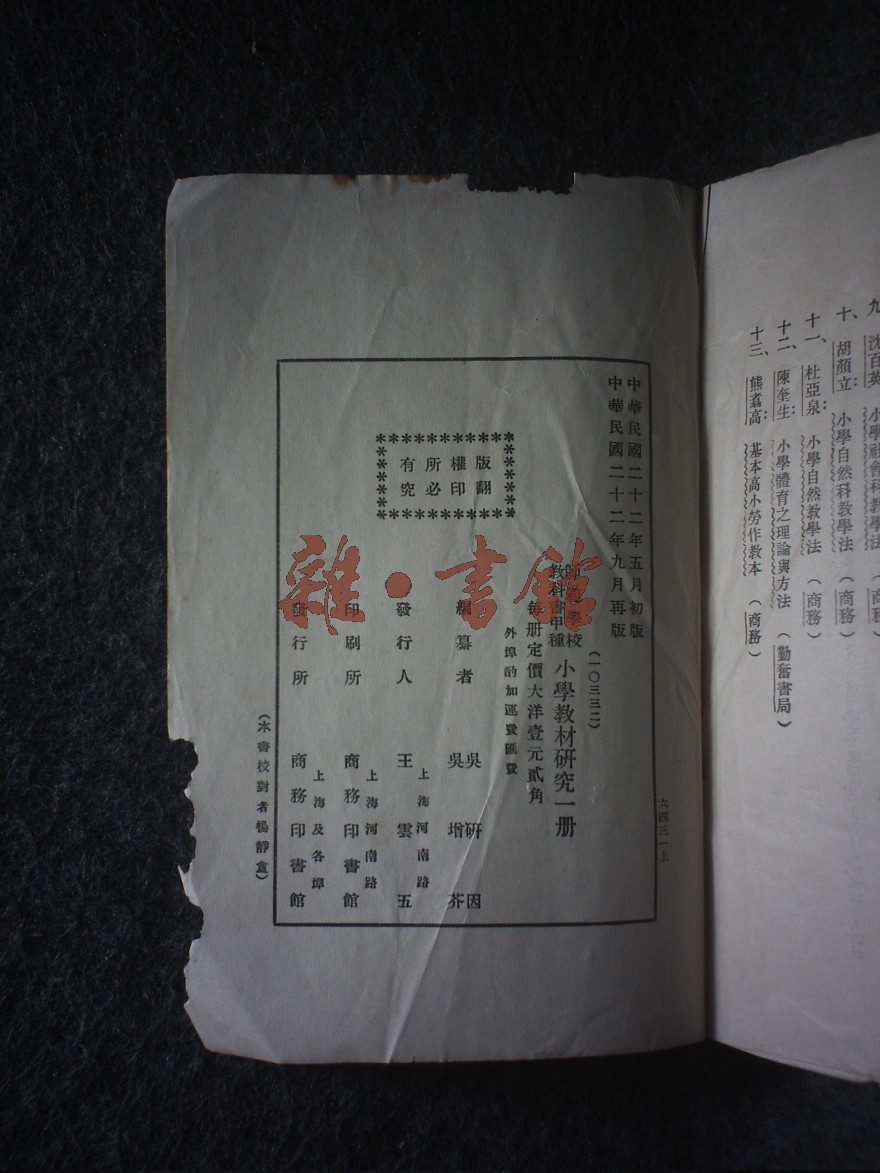 九、沈百英：小學社會科教學法（商務）
十、胡顏立：小學自然科教學法（商務）
十一、杜亞泉：小學自然教學法（商務）
十二、陳奎生：小學體育之理論與方法（勤奮書局）
十三、熊翥高：基本高小勞作教本（商務）
六四三一上
中華民國二十二年五月初版
中華民國二十二年九月再版
（一〇三三二）
師範學校
教科書甲種
小學教材研究一册
每册定價大洋壹元貳角
外埠酌加運費匯費
版權所有
翻印必究
編纂者 吳研因 吳增芥
發行人 王雲五
上海河南路
印刷所 商務印書館
上海河南路
發行所 商務印書館
上海及各埠
（本書校對者楊靜盦）
雜·書館